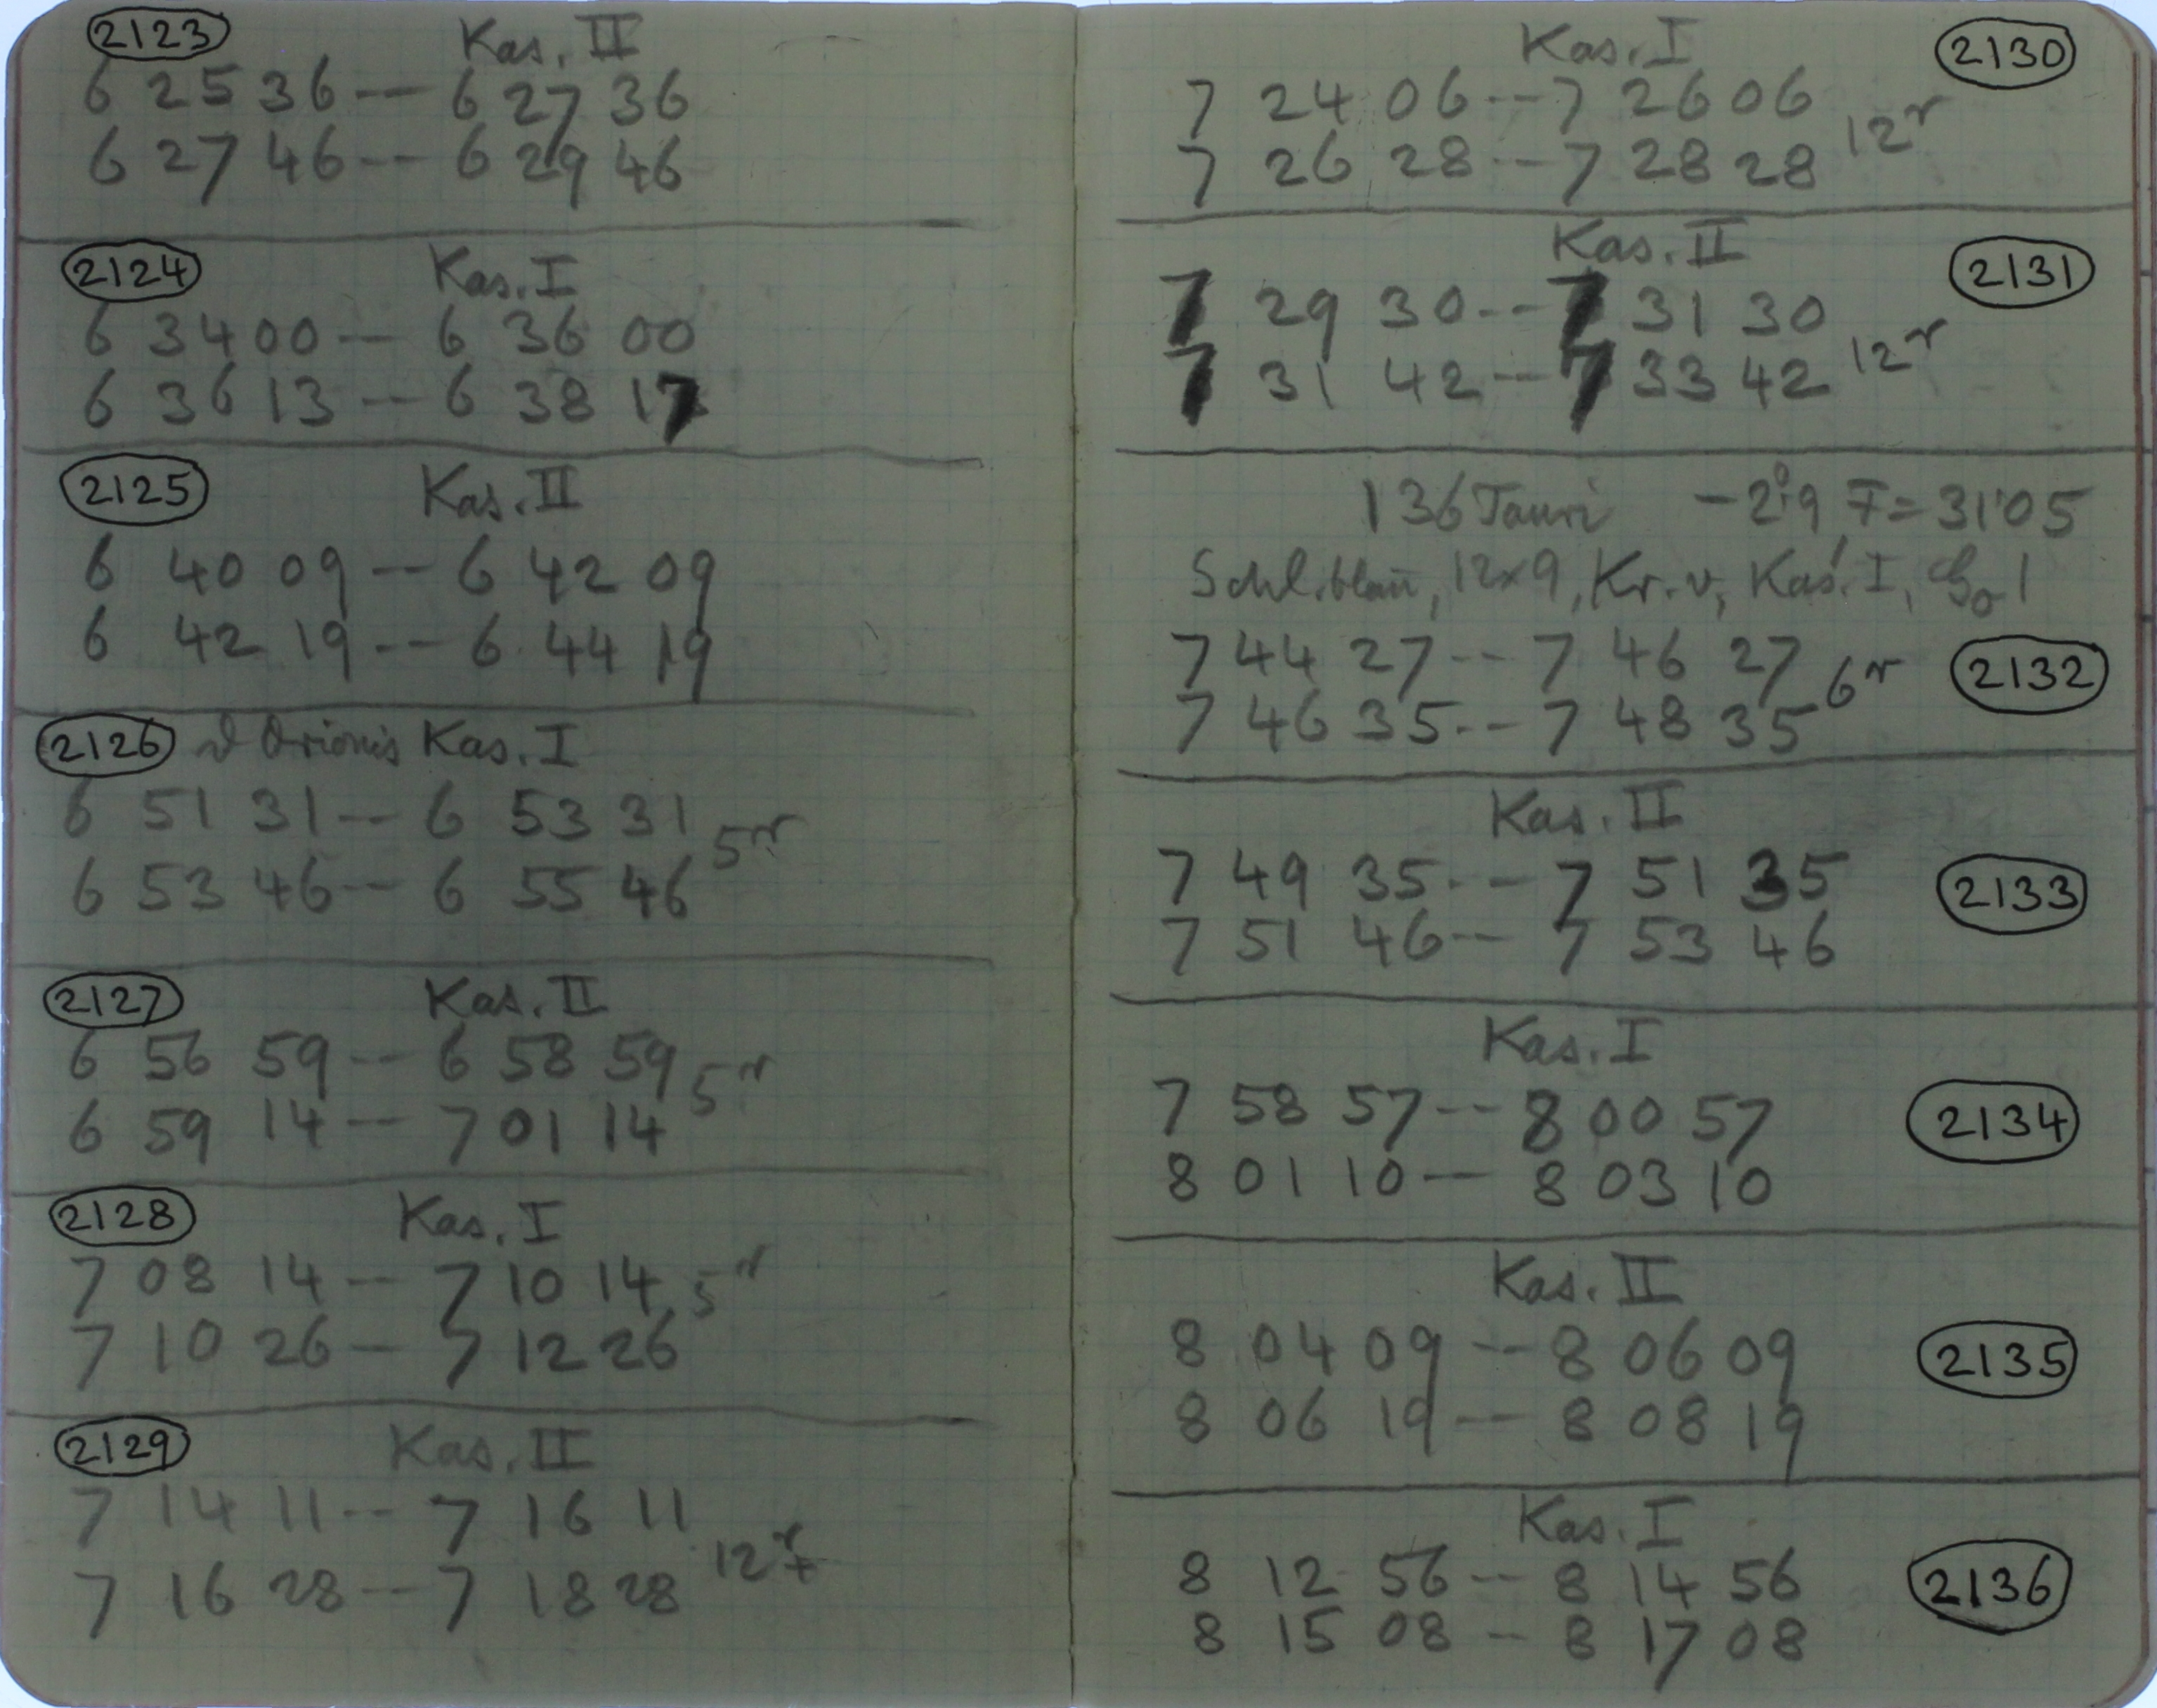 2123 Kas. II
6 25 36 -- 6 27 36
6 27 46 -- 6 29 46
2124 Kas. I
6 34 00 -- 6 36 00
6 36 13 -- 6 38 17
2125 Kas. II
6 40 09 -- 6 42 09
6 42 19 -- 6 44 19
2126 ϑ Orionis Kas. I
6 51 31 -- 6 53 31
5r
6 53 46 -- 6 55 46
2127 Kas. II
6 56 59 -- 6 58 59
5r
6 59 14 -- 7 01 14
2128 Kas. I
7 08 14 -- 7 10 14 5r
7 10 26 -- 7 12 26
2129 Kas. II
7 14 11 -- 7 16 11
12r
7 16 28 -- 7 18 28
Kas. I 2130
7 24 06 -- 7 26 06
12r
7 26 28 -- 7 28 28
Kas. II 2131
7 29 30 -- 7 31 30
12r
7 31 42 -- 7 33 42
136 Tauri -2°.9 F = 31'05
Schl. blau, 12x9, Kr. v, Kas. I, 1
7 44 27 -- 7 46 27
6r 2132
7 46 35 -- 7 48 35
Kas. II
7 49 35 -- 7 51 35
2133
7 51 46 -- 7 53 46
Kas. I
7 58 57 -- 8 00 57
2134
8 01 10 -- 8 03 10
Kas. II
8 04 09 -- 8 06 09
2135
8 06 19 -- 8 08 19
Kas. I
8 12 56 -- 8 14 56
2136
8 15 08 -- 8 17 08